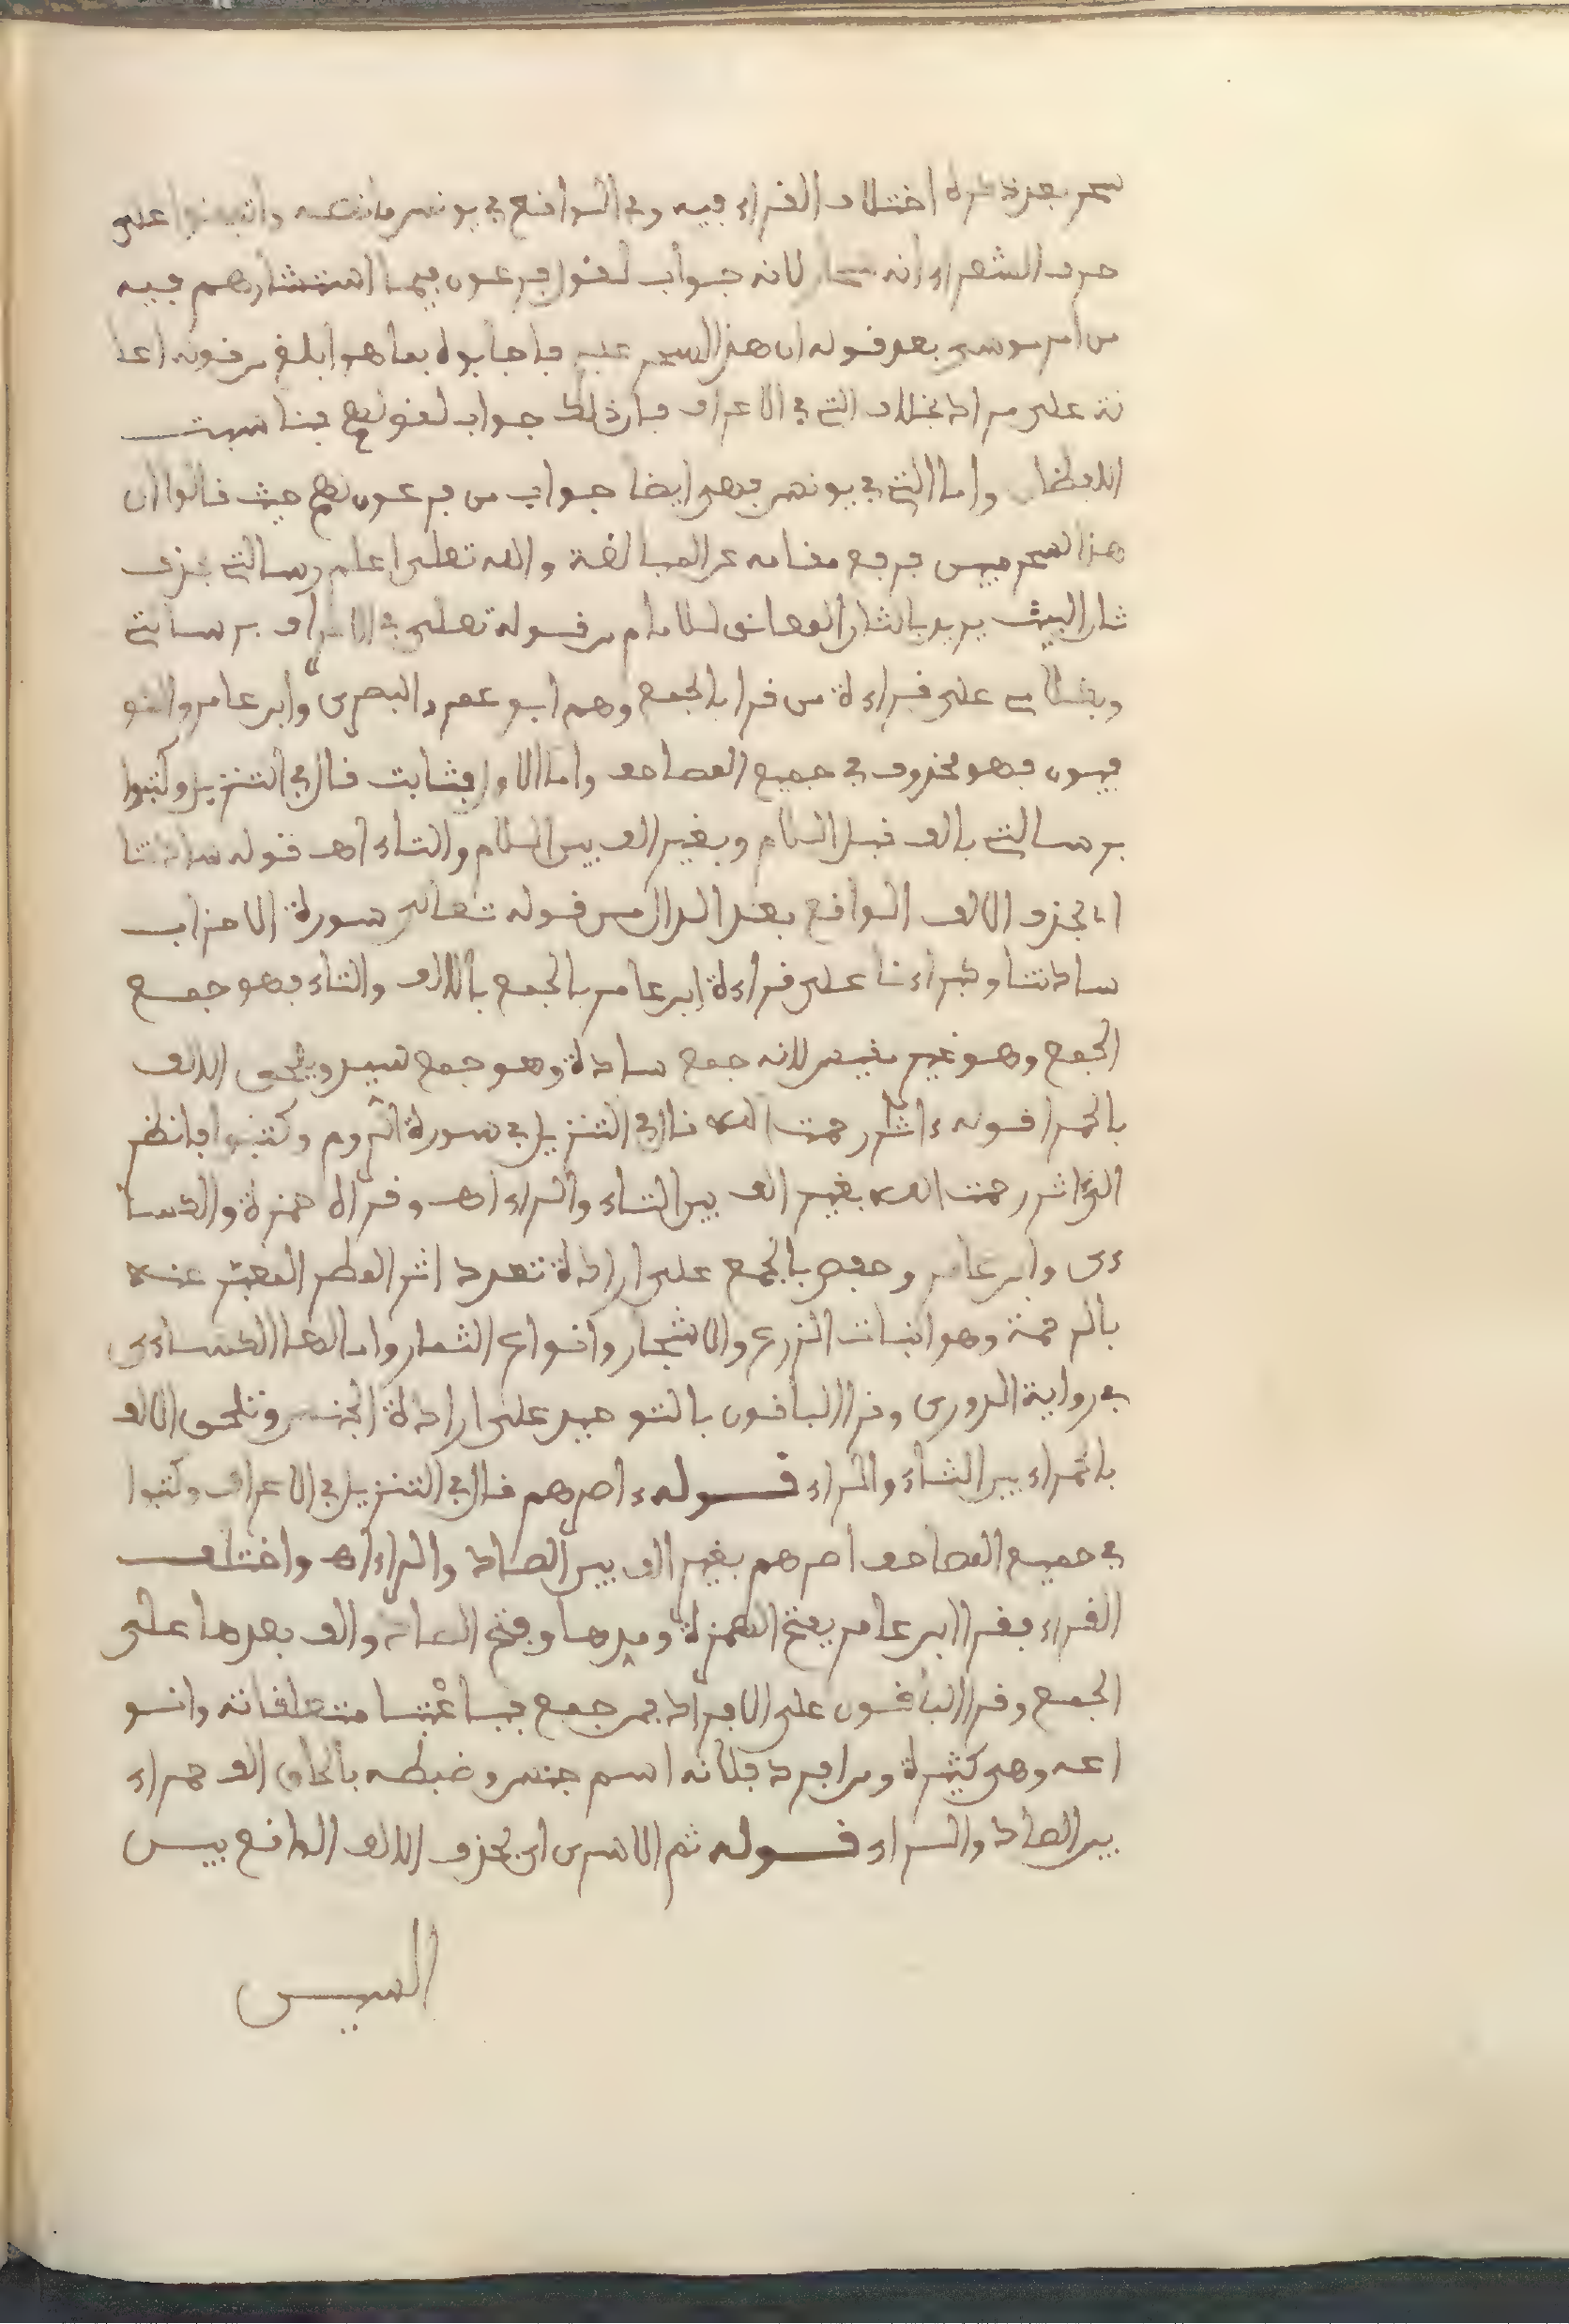 سحر بعد ذكره اختلاف القراء فيه وفي الواقع في يونس واتفقوا على
حرف الشعراء أنه سحار لانه جواب لقول فرعون فيما استشارهم فيه
من امر موسى بعد قوله ان هذا لسحر عليم فاجابوه بما هو ابلغ من قوله
على مراده بخلاف التي في الاعراف فان ذلك جواب لقولهم فتناسبت
اللفظان واما التي في يونس فهي ايضا جواب من فرعون لهم حيث قالوا ان
هذا لسحر مبين فرفع مقامه عن المبالغة والله تعلى اعلم رسالتي بحذف
ثان البيت يريد بالثان المعانق للام من قوله تعلى في الاعراف برسالتي
وبكلامي على قراءة من قرا بالجمع وهم ابو عمرو البصري وابن عامر والكو
فيون فهو محذوف في جميع المصاحف واما الاول فثابت قال في التنزيل وكتبوا
برسالتي بالف قبل اللام وبغير الف بين اللام والتاء اهـ قوله ساداتنا
اي بحذف الالف الواقع بعد الدال من قوله تعالى سورة الاحزاب
سادتنا وكبراءنا على قراءة ابن عامر بالجمع بالالف والتاء فهو جمع
الجمع وهو غير مقيس لانه جمع سادة وهو جمع سيد ويلحق الالف
بالحمرا قوله ءاثر رحمت الله قال في التنزيل في سورة الروم وكتبوا فانظر
الى اثر رحمت الله بغير الف بين الثاء والراء اهـ وقراه حمزة والكسا
ءى وابن عامر وحفص بالجمع على ارادة تعدد اثر المطر المعبر عنه
بالرحمة وهو انبات الزرع والاشجار وانواع الثمار وامالها الكساءى
في رواية الدوري وقرا الباقون بالتوحيد على ارادة الجنس وتلحق الالف
بالحمراء بين الثاء والراء قوله ءاصرهم قال في التنزيل في الاعراف وكتبوا
في جميع المصاحف اصرهم بغير الف بين الصاد والراء اهـ واختلف
القراء فقرا ابن عامر بفتح الهمزة ومدها وفتح الصاد والف بعدها على
الجمع وقرا الباقون على الافراد فمن جمع متعلقاته وانو
اعه وهي كثيرة ومن افرد فلانه اسم جنس وضبطه بالحاق الف حمراء
بين الصاد والراء قوله ثم الاسرى اي بحذف الالف الواقع بين
السين